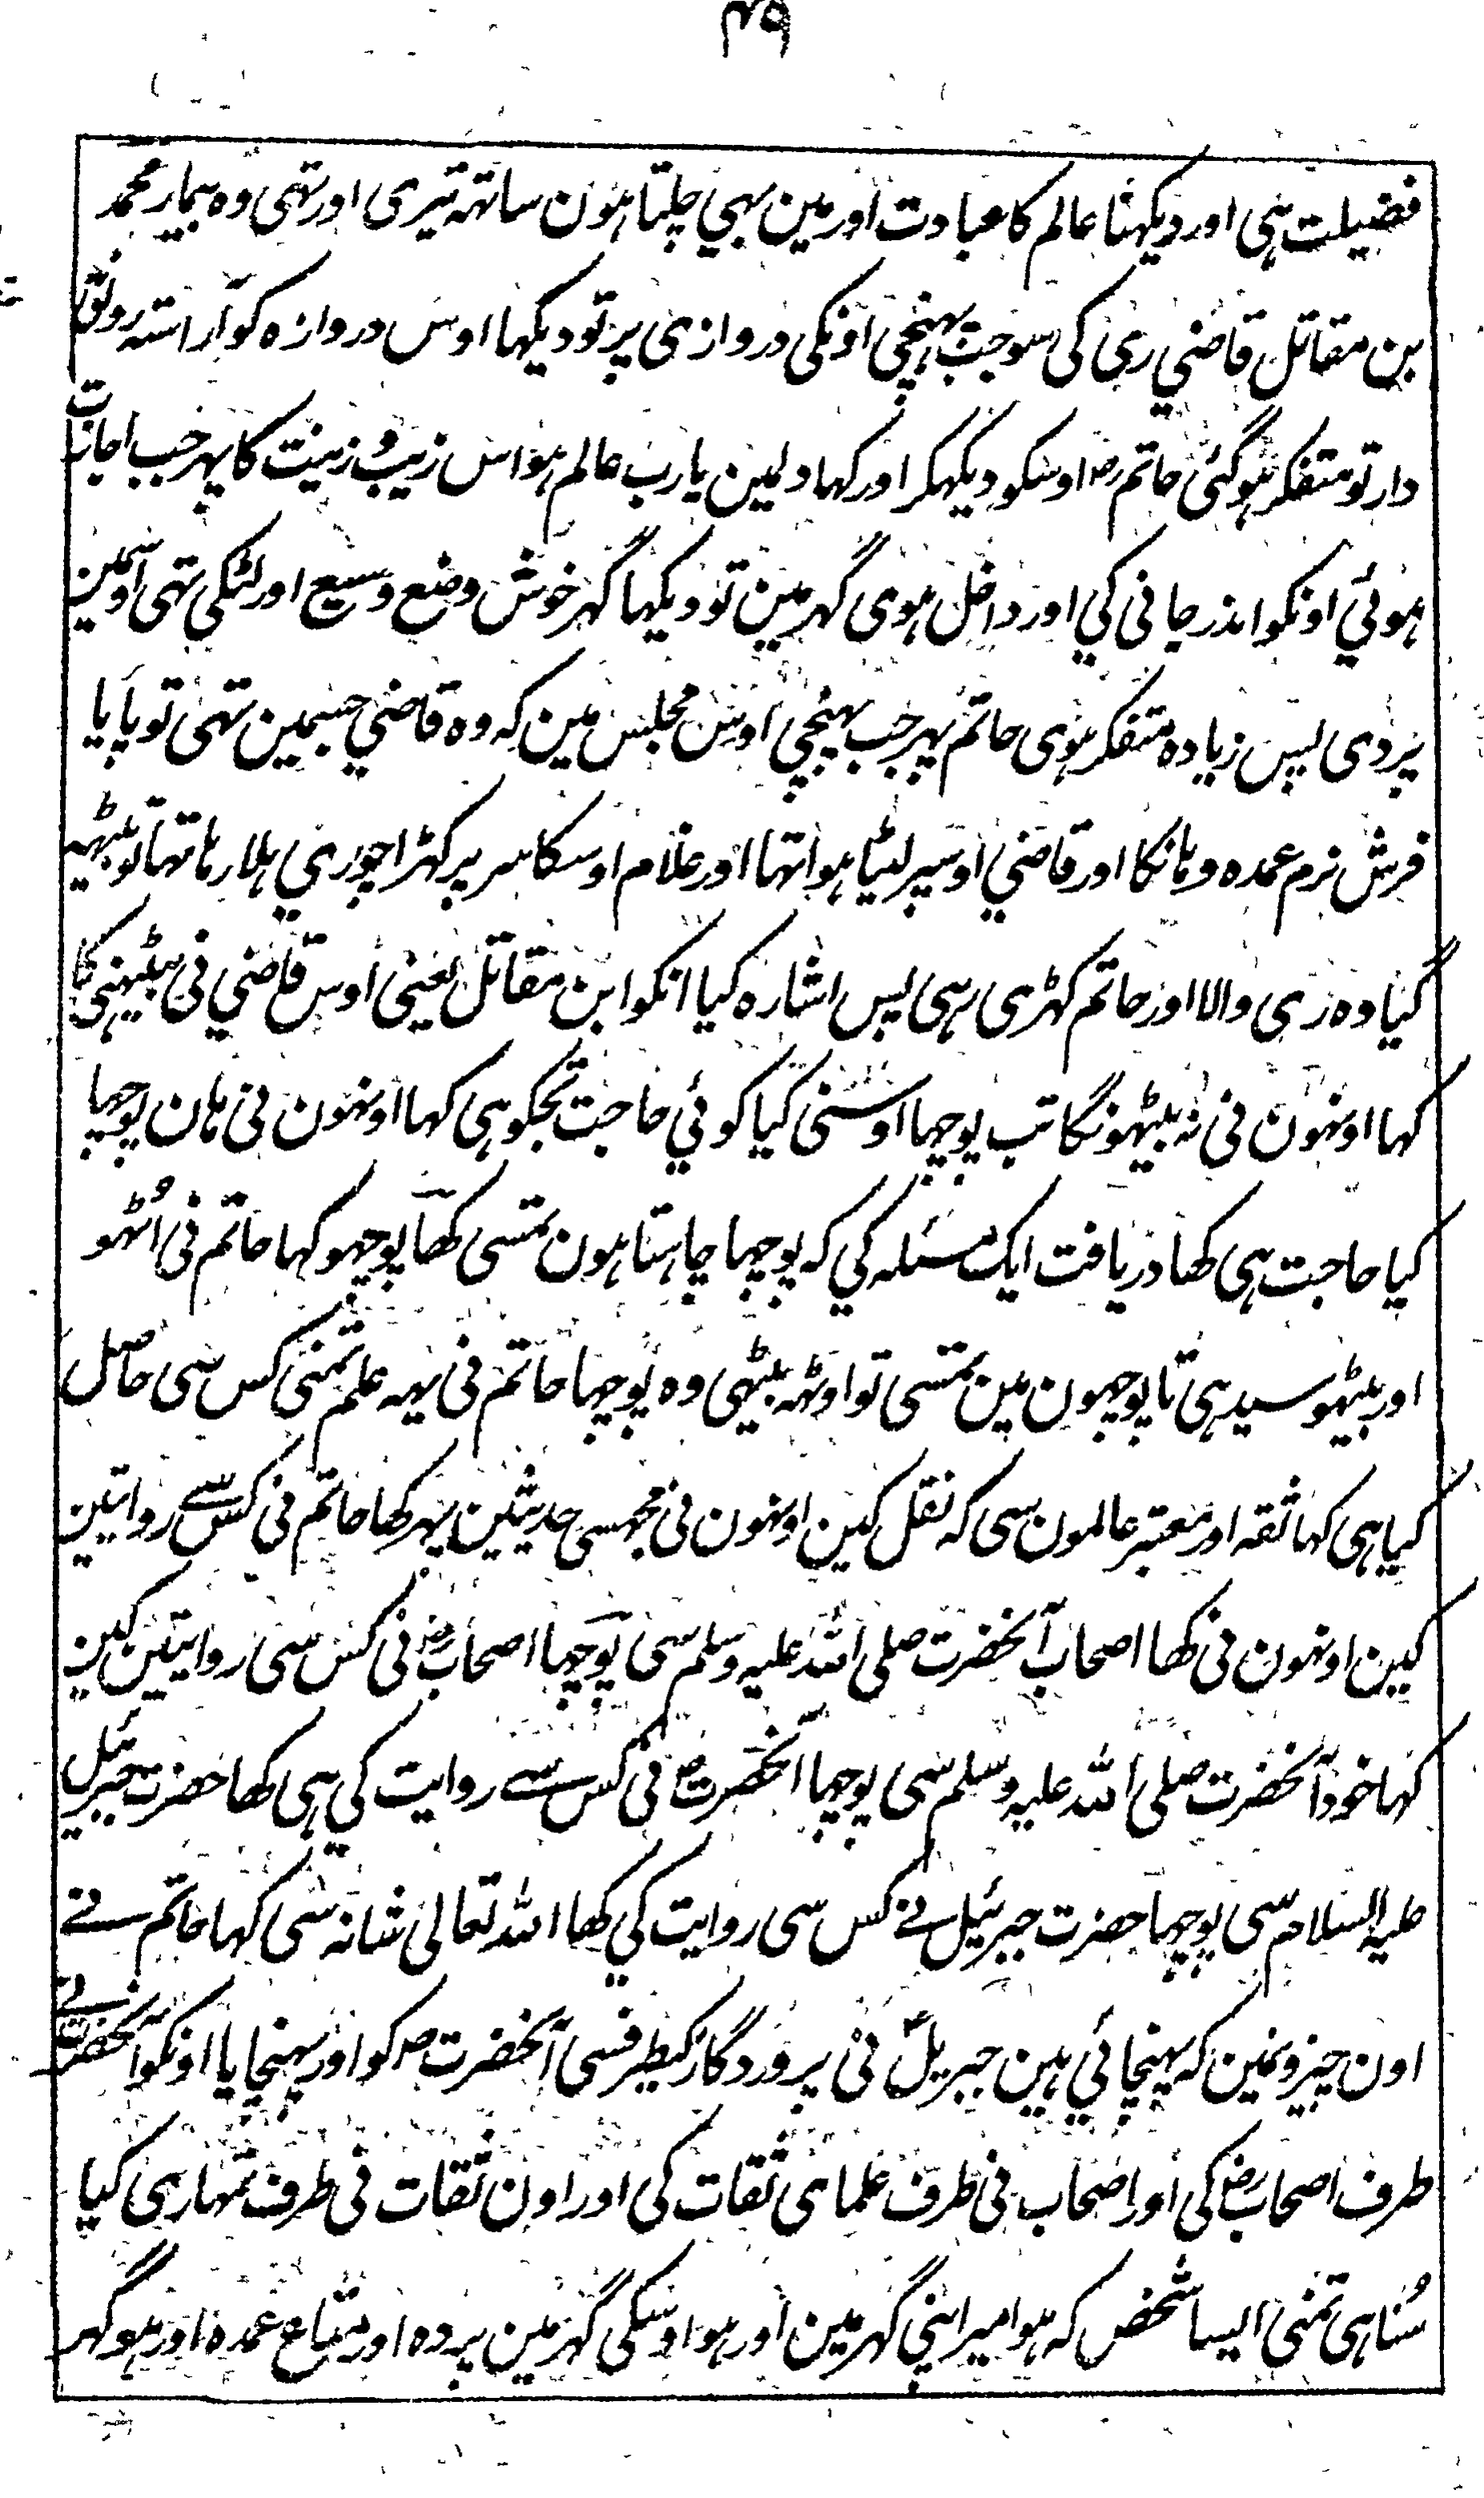 ۴۹
فضیلت ہی اور دیکہنا عالم کا عبادت اور مین بہی چلتا ہون ساتہہ تیری اور تہی وہ بیمار محمد
بن مقاتل قاضی ری کی سوجب پہنچی اونکی دروازی پر تو دیکہا اوس دروازہ کو آراستہ رونق
دار تو متفکر ہوگئی حاتم رح اوسکو دیکہکر اور کہا دلمین یا رب عالم ہو اس زیب و زینت کا پہر جب اجازت
ہوئی اونکو اندر جانی کی اور داخل ہوی گہر مین تو دیکہا گہر خوش وضع وسیع اور لٹکی تہی اوسمین
پردی پس زیادہ متفکر ہوی حاتم پہر جب پہنچی اوس مجلس مین کہ وہ قاضی جسمین تہی تو پایا
فرش نرم عمدہ وہانکا اور قاضی اوسپر لیٹا ہوا تہا اور غلام اوسکا سر پر کہڑا چوری ہلا رہا تہا تو بیٹہہ
گیا وہ ری والا اور حاتم کہڑی رہی پس اشارہ کیا انکو ابن مقاتل یعنی اوس قاضی نی بیٹہنی کا
کہا اونہون نی نہ بیٹہونگا تب پوچہا اوسنی کیا کوئی حاجت تجکو ہی کہا اونہون نی ہان پوچہا
کیا حاجت ہی کہا دریافت ایک مسئلہ کی کہ پوچہا چاہتا ہون تمسی کہا پوچہو کہا حاتم نی اُٹہو
اور بیٹہو سیدہی تا پوچہون مین تمسی تو اوٹہہ بیٹہی وہ پوچہا حاتم نی یہہ علم تمنی کس سی حاصل
کیا ہی کہا ثقہ اور معتبر عالمون سی کہ نقل کین اونہون نی مجہسی حدیثین پہر کہا حاتم نی کس سے روایتین
کین اونہون نی کہا اصحاب آنحضرت صلی اللہ علیہ وسلم سی پوچہا اصحاب رض نی کس سی روایتین کین
کہا خود آنحضرت صلی اللہ علیہ وسلم سی پوچہا آنحضرت ص نی کس سے روایت کی ہی کہا حضرت جبرئیل
علیہ السلام سی پوچہا حضرت جبرئیل نے کس سی روایت کی کہا اللہ تعالی شانہ سی کہا حاتم نے
اون چیزونمین کہ پہنچائی ہین جبریلؑ نی پروردگار کیطرفسی آنحضرت ص کو اور پہنچایا اونکو آنحضرت نے
طرف اصحاب رض کی اور اصحاب نی طرف علمای ثقات کی اور اون ثقات نی طرف تمہاری کیا
سُنا ہی تمنی ایسا شخص کہ ہو امیر اپنی گہر مین اور ہو اوسکی گہر مین پردہ اور متاع عمدہ اور ہو گہر